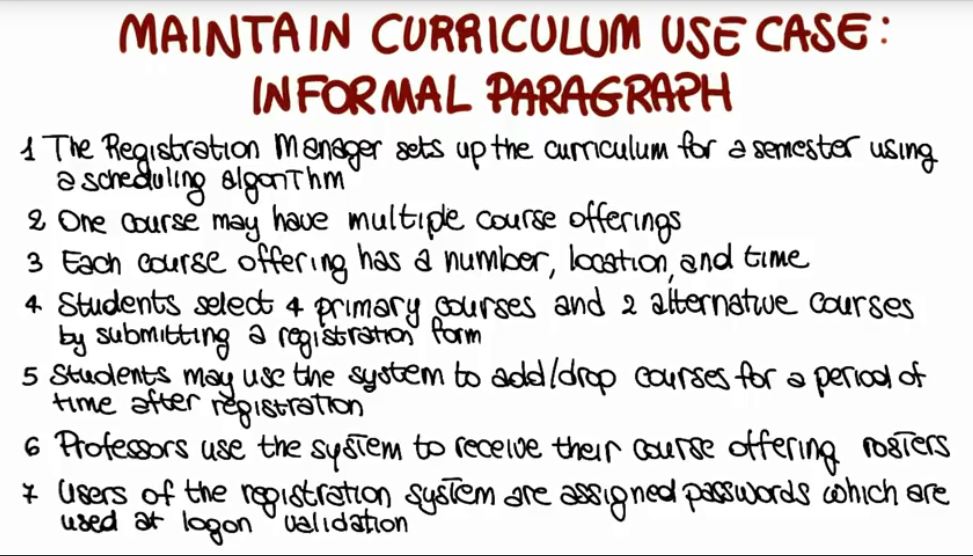 MAINTAIN CURRICULUM USE CASE:
INFORMAL PARAGRAPH
1 The Registration Manager sets up the curriculum for a semester using
a scheduling algorithm
2 One course may have multiple course offerings
3 Each course offering has a number, location, and time
4 Students select 4 primary courses and 2 alternative courses
by submitting a registration form
5 Students may use the system to add/drop courses for a period of
time after registration
6 Professors use the system to receive their course offering rosters
7 Users of the registration system are assigned passwords which are
used at logon validation